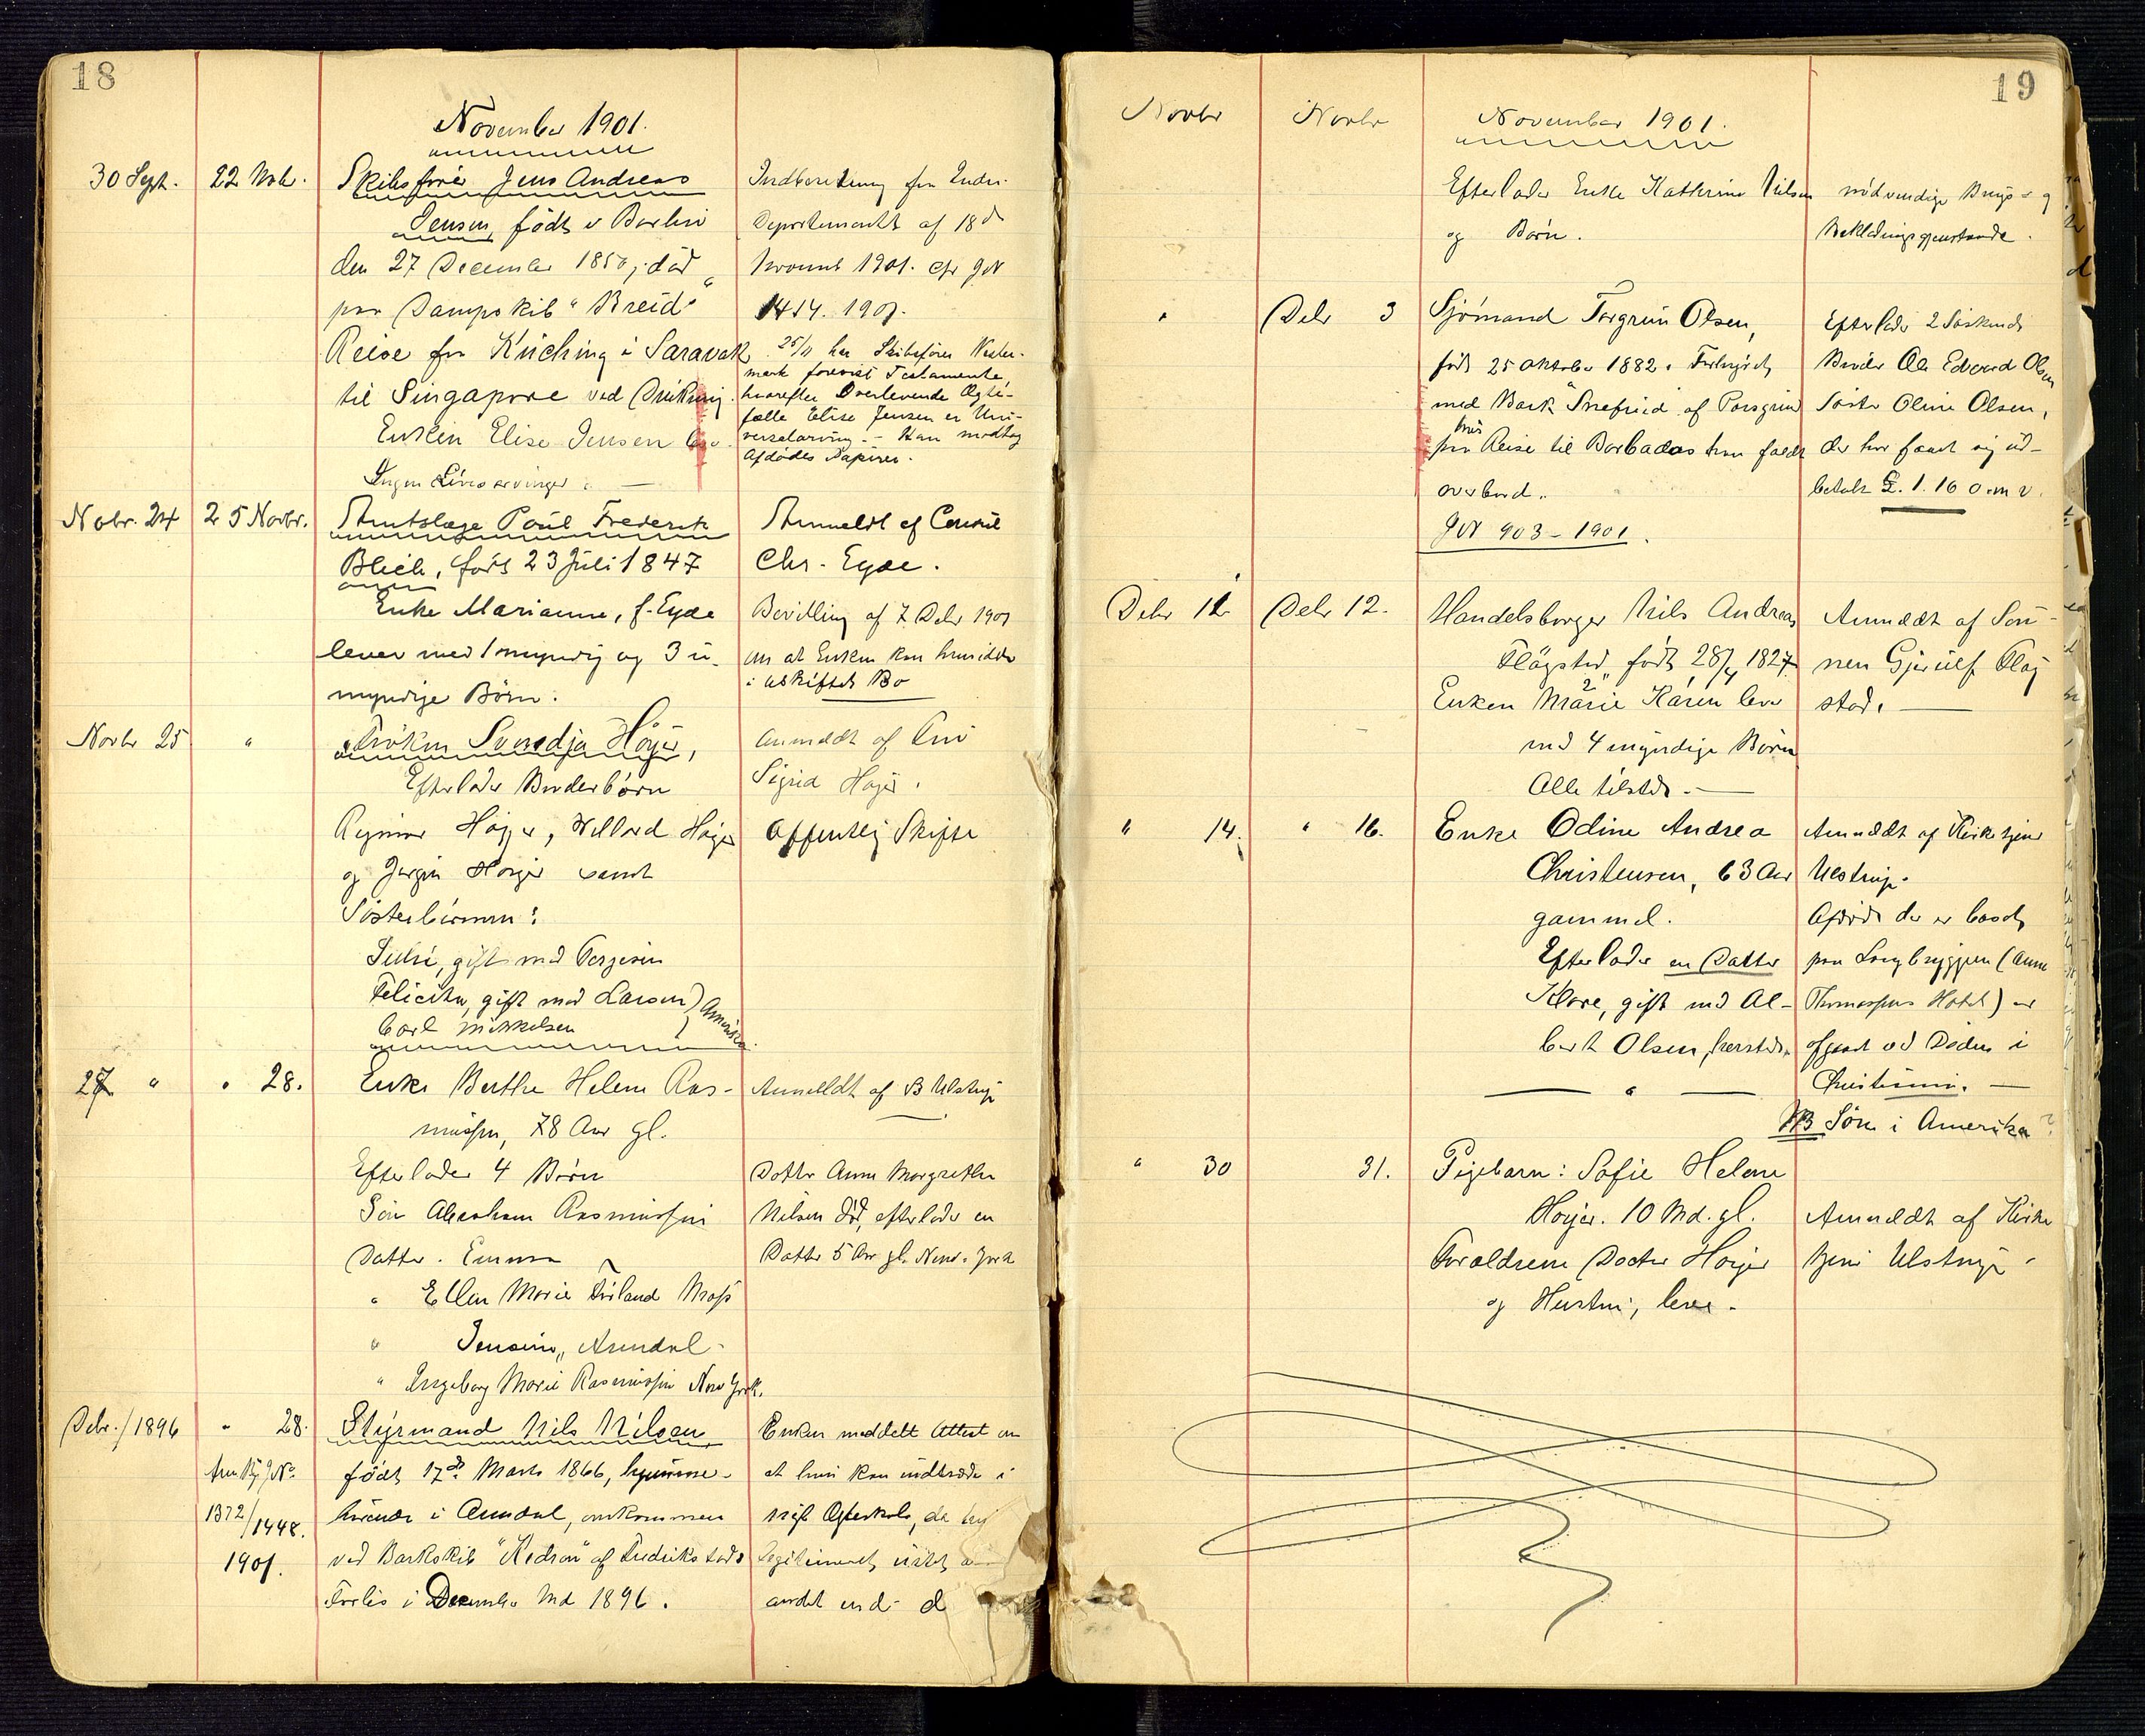 18
November 1901.
30 Sept.
22 Nobr.
Skibsfører Jens Andreas
Jensen, født i
den 27 December 1850, død
paa Dampskib "Breid"
Reise fra Kuching i Saravak
til Singapore ved Drukning.
Enken Elise Jensen
Ingen Livsarvinger.
Indberetning fra Indre
Departementet af 18de
1901. cfr JN
1414. 1901.
25/11 har Skibsfører Vester-
mark forevist Testamente,
hvorefter Overlevende Ægte-
fælle Elise Jensen er Uni-
versalarving. - Han modtog
Afdødes Papirer.
Nobr. 24
25 Novbr.
Amtslæge Poul Frederik
Blich, født 23 Juli 1847
Enke Marianne, f. Eyde
lever med 1 myndig og 3 u-
myndige Børn.
Anmeldt af Consul
Chr. Eyde.
Bevilling af 7 Debr 1901
om at Enken kan hensidde
i uskiftet Bo
Novbr 25
"
Frøken Svendja Höyer,
Efterlader Broderbørn
Höyer, Willard Höyer
og Jørgen Höyer samt
Søsterbørnene:
Julie, gift med
Felicita, gift med Larsen
Carl Mikkelsen
Amerika.
Anmeldt af Fru
Sigrid Höyer.
Offentlig Skifte
27 "
" 28.
Enke Berthe Helene Ras-
mussen, 78 Aar gl.
Efterlader 4 Børn
Søn Abraham Rasmussen
Datter. Emma
" Ellen Marie Moss
" Arendal
" Ingeborg Marie Rasmussen New York.
Anmeldt af B Ulstrup
Datter Anne Margrethe
Nilsen død, efterlader en
Datter 5 Aar gl. New-York
Debr./1896
" 28.
JNo.
1372/1448.
1901.
Styrmand Nils Nilsen
født 17de Marts 1866, hjemme-
hørende i Arendal, omkommen
ved Barkskib "Kedron" af Fredrikstads
Forlis i December Md 1896.
Enken meddelt Attest om
at hun kan indtræde i
nyt Ægteskab, da
legitimeret
andet end d
19
Novbr
Novbr
November 1901.
Efterlader Enke Kathrine Nilsen
og Børn.
nødvendige Brugs- og
Beklædningsgjenstande.
"
Debr 3
Sjømand Torgrim Olsen,
født 25 Oktober 1882. Forhyret
med Bark "Snefried" af Porsgrund
paa Reise til Barbados han faldt
overbord.
JN 903-1901.
Efterlader 2 Søskende
Broder Ole Edvard Olsen
Søster Oline Olsen,
der har faaet sig ud-
betalt £. 1. 16 0. m v.
Debr 12
Debr 12.
Handelsborger Nils Andreas
Fløgstad, født 28/4 1827.
Enken Marie Karen lever
med 4 myndige Børn
Alle tilstede.
Anmeldt af Søn-
nen Gjerulf Fløg
stad.
" 14.
" 16.
Enke Odine Andrea
Christensen, 63 Aar
gammel.
Efterlader en Datter
Klare, gift med Al-
bert Olsen, hersteds.
"
Anmeldt af Kirketjener
Ulstrup.
Afdøde der er bosat
paa Langbryggen (Anne
Thomassens Hotel) er
afgaaet ved Døden i
Christiania.
NB Søn i Amerika?
" 30
31.
Pigebarn: Sofie Helene
Höyer. 10 Md. gl.
Forældrene Doctor Höyer
og Hustru, lever.
Anmeldt af Kirke
tjener Ulstrup